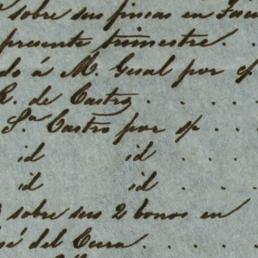 sobre sus fincas en
presente trimestre . .
do á M. Gusal por c/.
R. de Castro . . . . .
S.ª Castro por s/p . . .
id id . . . .
id id . . . .
sobre sus 2 bonos en
sé del Cura . . . . .